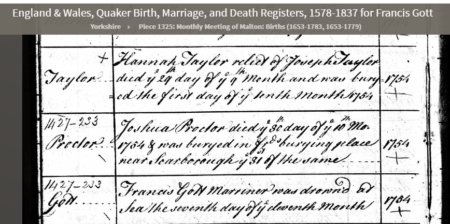 England & Wales, Quaker Birth, Marriage, and Death Registers, 1578-1837 for Francis Gott
Yorkshire › Piece 1325: Monthly Meeting of Malton: Births (1653-1783, 1653-1779)
+ Hannah Taylor relict of Joseph Taylor
Taylor died yͤ 29 day of yͤ 9th Month and was bury 1754
=ed the first day of yͤ tenth Month 1754 +
1427-233
Joshua Proctor died yͤ 30 day of yͤ 10th Mo.
Proctor 1754 & was buryed in burying place 1754
near Scarborough yͤ 31 of the same +
1427-233
Francis Gott Marriner was drownd at
Gott Sea the seventh day of yͤ eleventh Month 1754
+